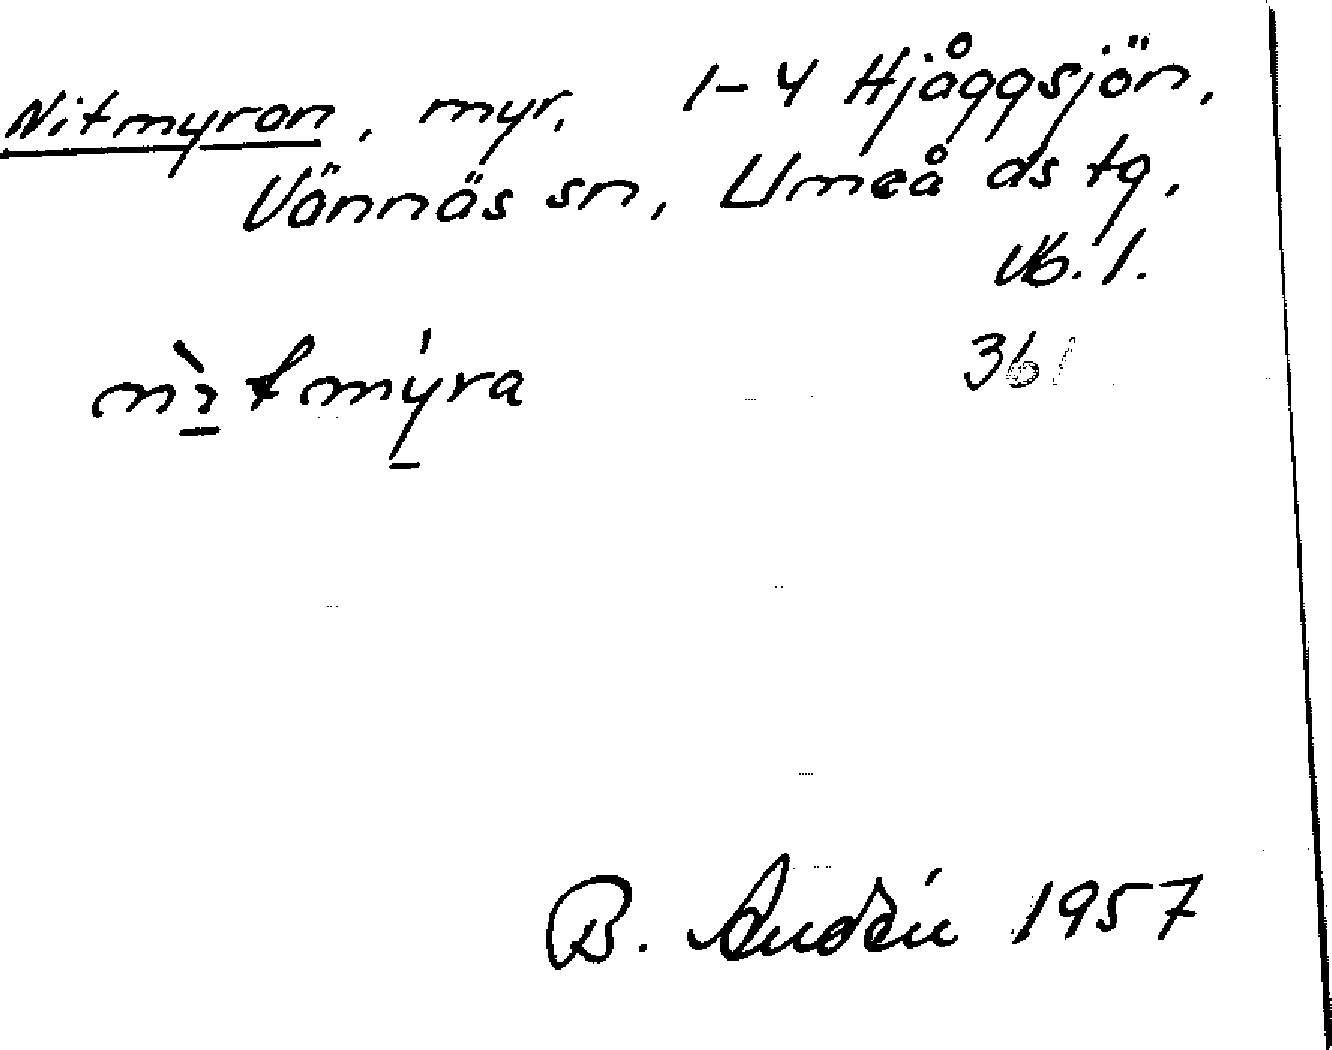 Nitmyran, myr. 1-4 Hjåggsjön,
Vännäs sn, Umeå ds tg.
Vb. l.
361
B. Andén 1957